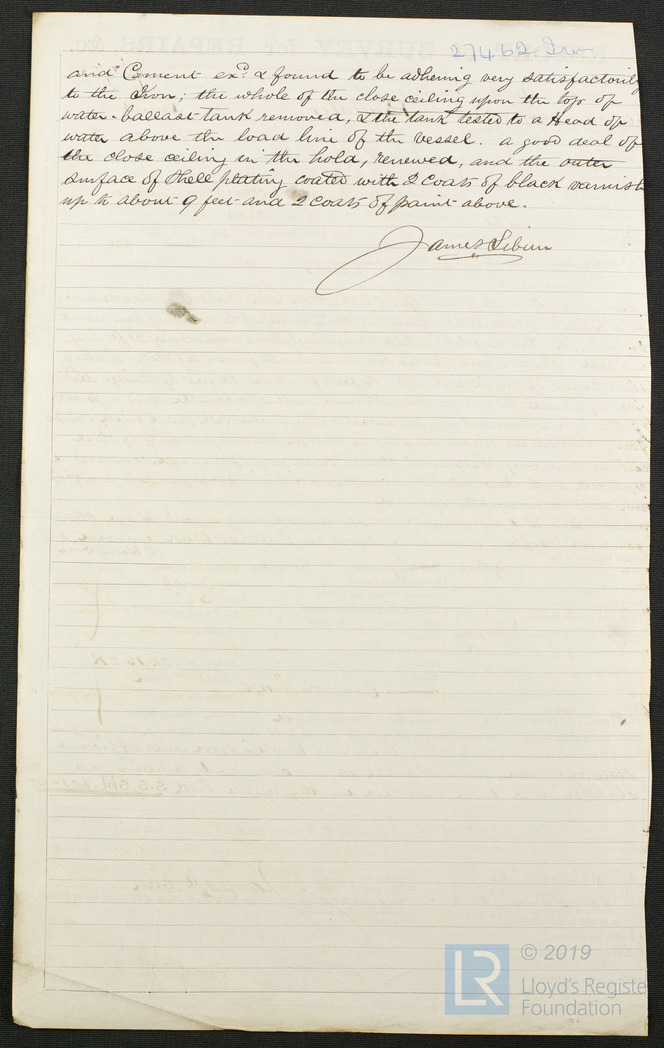 27462 Iron
and Cement ex.d & found to be adhering very satisfactorily
to the Iron; the whole of the close ceiling upon the top of
water-ballast tank removed, & the tank tested to a Head of
water above the load line of the vessel. a good deal of
the close ceiling in the hold, renewed, and the outer
surface of Shell plating coated with 2 coats of black varnish
up to about 9 feet and 2 coats of paint above.
James
© 2019
LR
Lloyd's Register
Foundation